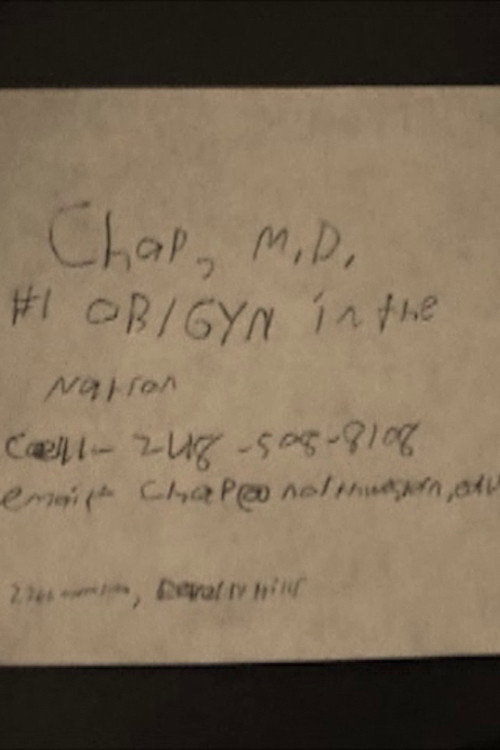 Chap, M.D.
#1 OB/GYN in the
Nation
Cell- 248-505-8108
email- Chap@northwestern.edu